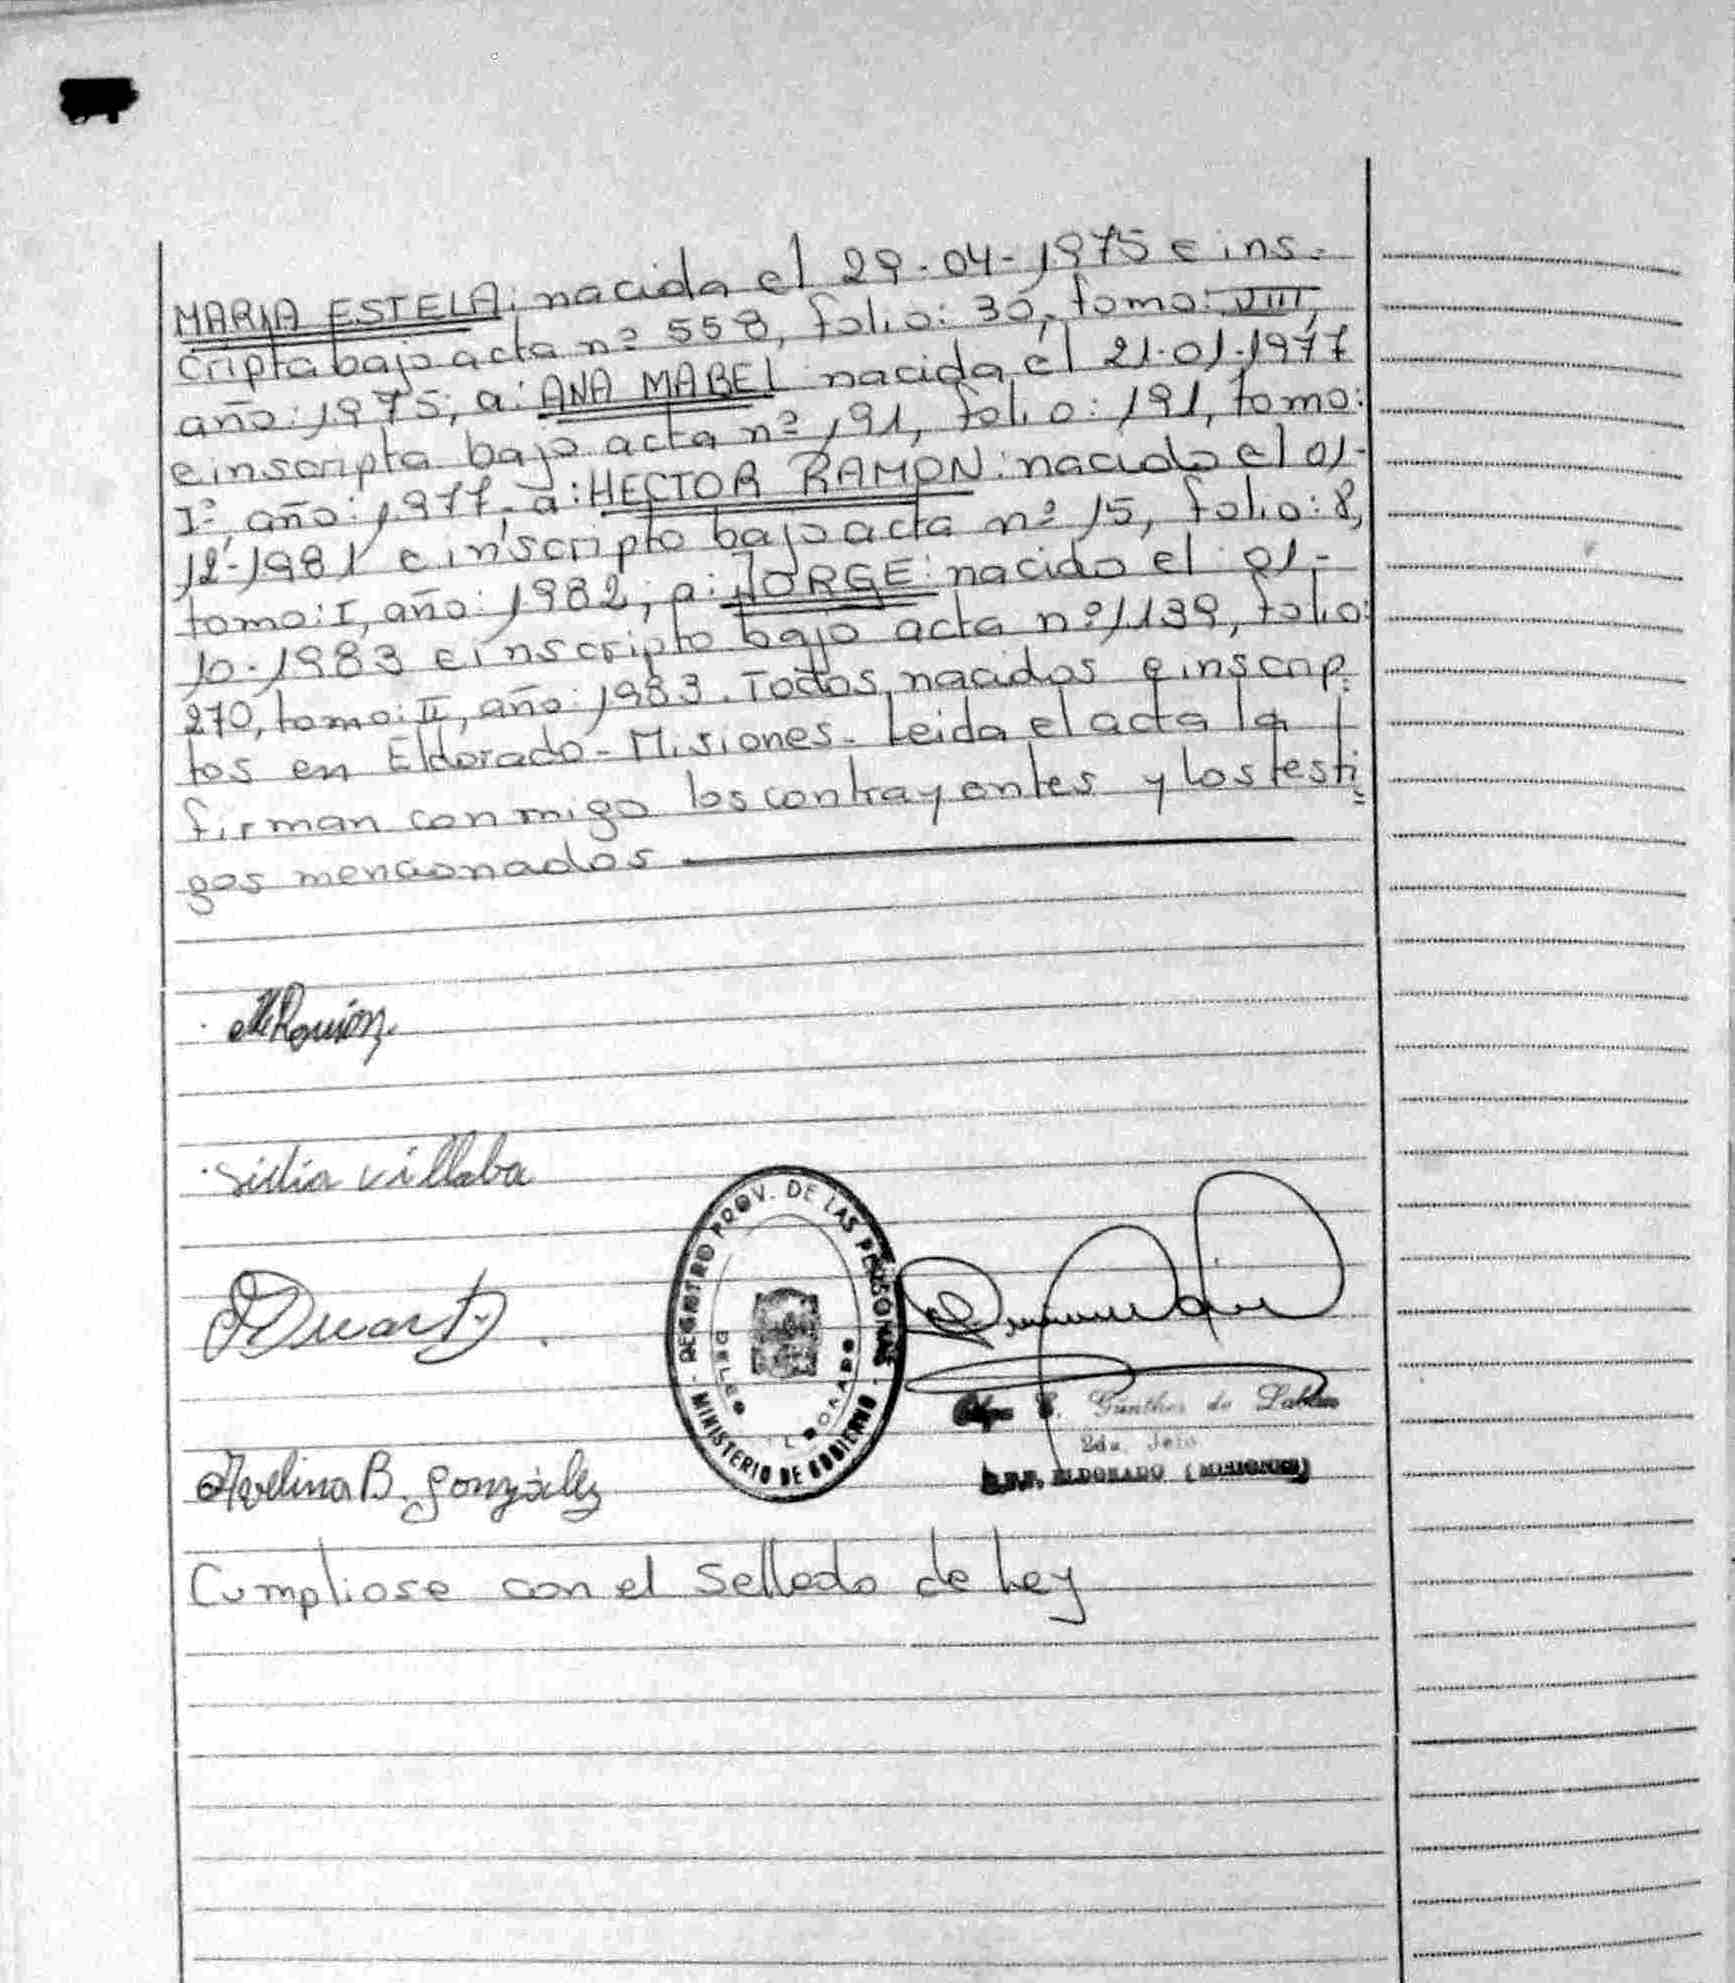 MARIA ESTELA: nacida el 29-04-1975 e ins-
cripta bajo acta nº 558, folio: 30, tomo: VIII,
año: 1975; a: ANA MABEL nacida el 21-01-1977
e inscripta bajo acta nº 191, folio: 191, tomo:
Iº, año: 1977, a: HECTOR RAMON: nacido el 01-
12-1981 e inscripto bajo acta nº 15, folio: 8,
tomo: I, año: 1982; a: JORGE: nacido el 01-
10-1983 e inscripto bajo acta nº 1139, folio:
270, tomo: II, año: 1983. Todos nacidos e inscrip-
tos en Eldorado - Misiones. Leida el acta la
firman conmigo los contrayentes y los testi
gos mencionados
villaba
REGISTRO PROV. DE LAS PERSONAS
MINISTERIO DE GOBIERNO
Duarte
Günther de
2da. Jefe
ELDORADO (MISIONES)
Avelina B. González
Cumpliose con el Sellado de Ley